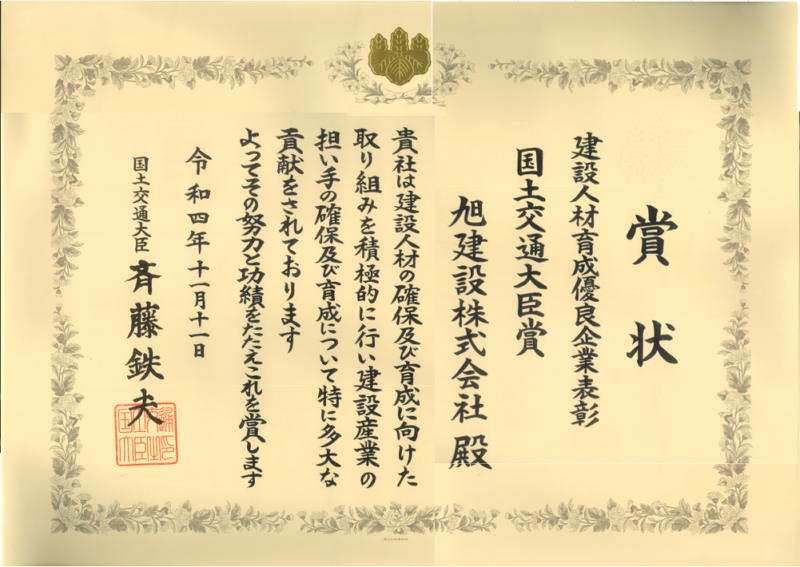 賞状
建設人材育成優良企業表彰
国土交通大臣賞
旭建設株式会社 殿
貴社は建設人材の確保及び育成に向けた
取り組みを積極的に行い建設産業の
担い手の確保及び育成について特に多大な
貢献をされております
よってその努力と功績をたたえこれを賞します
令和四年十一月十一日
国土交通大臣 斉藤鉄夫